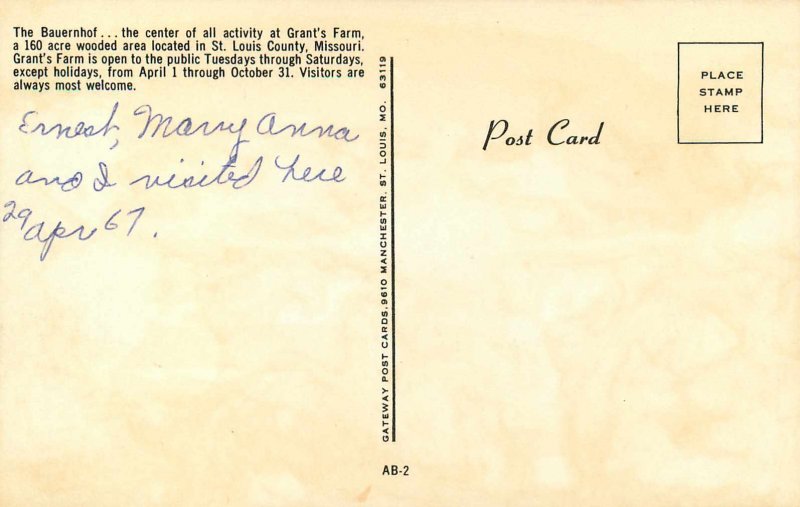 The Bauernhof . . . the center of all activity at Grant's Farm,
a 160 acre wooded area located in St. Louis County, Missouri.
Grant's Farm is open to the public Tuesdays through Saturdays,
except holidays, from April 1 through October 31. Visitors are
always most welcome.
Ernest, Mary Anna
and I visited here
29 Apr 67.
GATEWAY POST CARDS, 9610 MANCHESTER, ST. LOUIS, MO. 63119
AB-2
Post Card
PLACE
STAMP
HERE